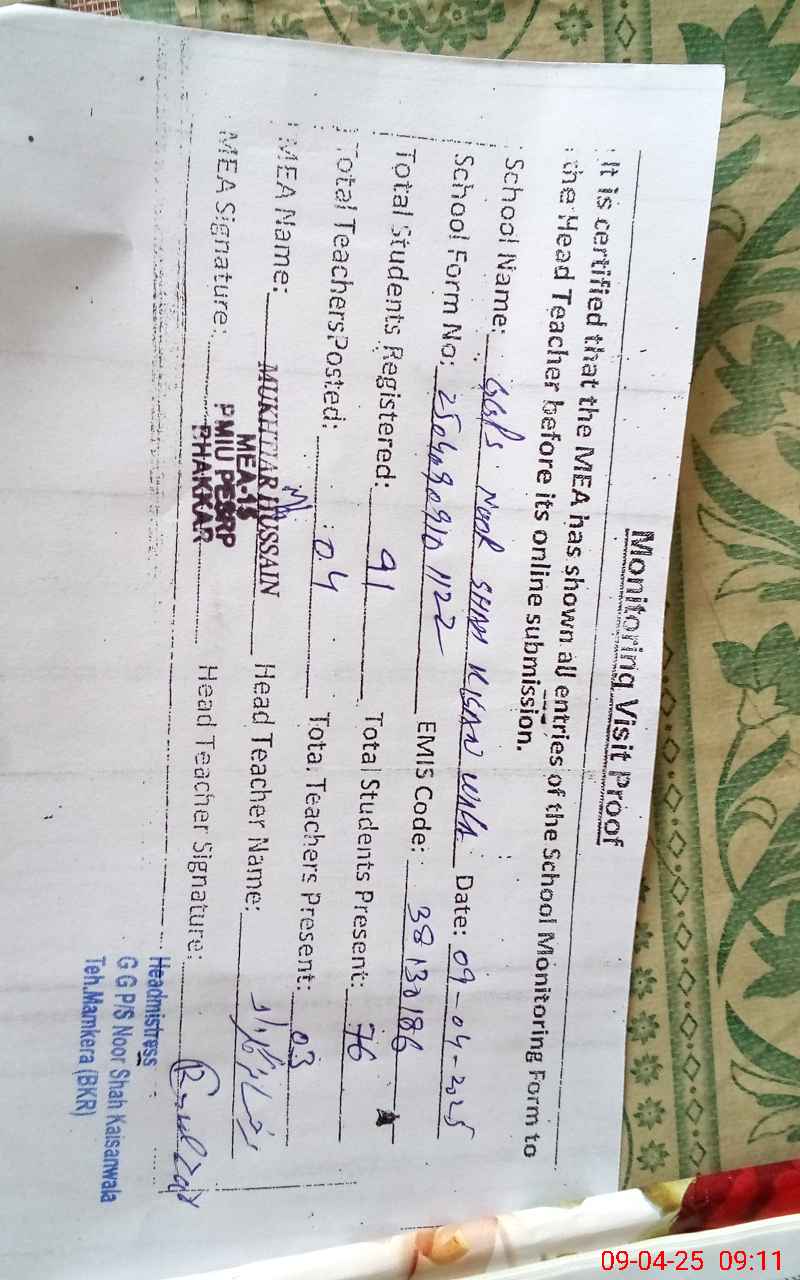 Monitoring Visit Proof
It is certified that the MEA has shown all entries of the School Monitoring Form to
the Head Teacher before its online submission.
School Name: GGPS Noor SHAH Date: 09-04-2025
School Form No: EMIS Code: 38130186
Total Students Registered: 91 Total Students Present: 76
Total Teachers Posted: 04 Total Teachers Present: 03
MEA Name: MUKHTIAR HUSSAIN Head Teacher Name:
MEA Signature: Head Teacher Signature:
MEA-15
PMIU PESRP
BHAKKAR
Headmistress
G G P/S Noor Shah Kaisanwala
Teh.Mamkera (BKR)
09-04-25 09:11